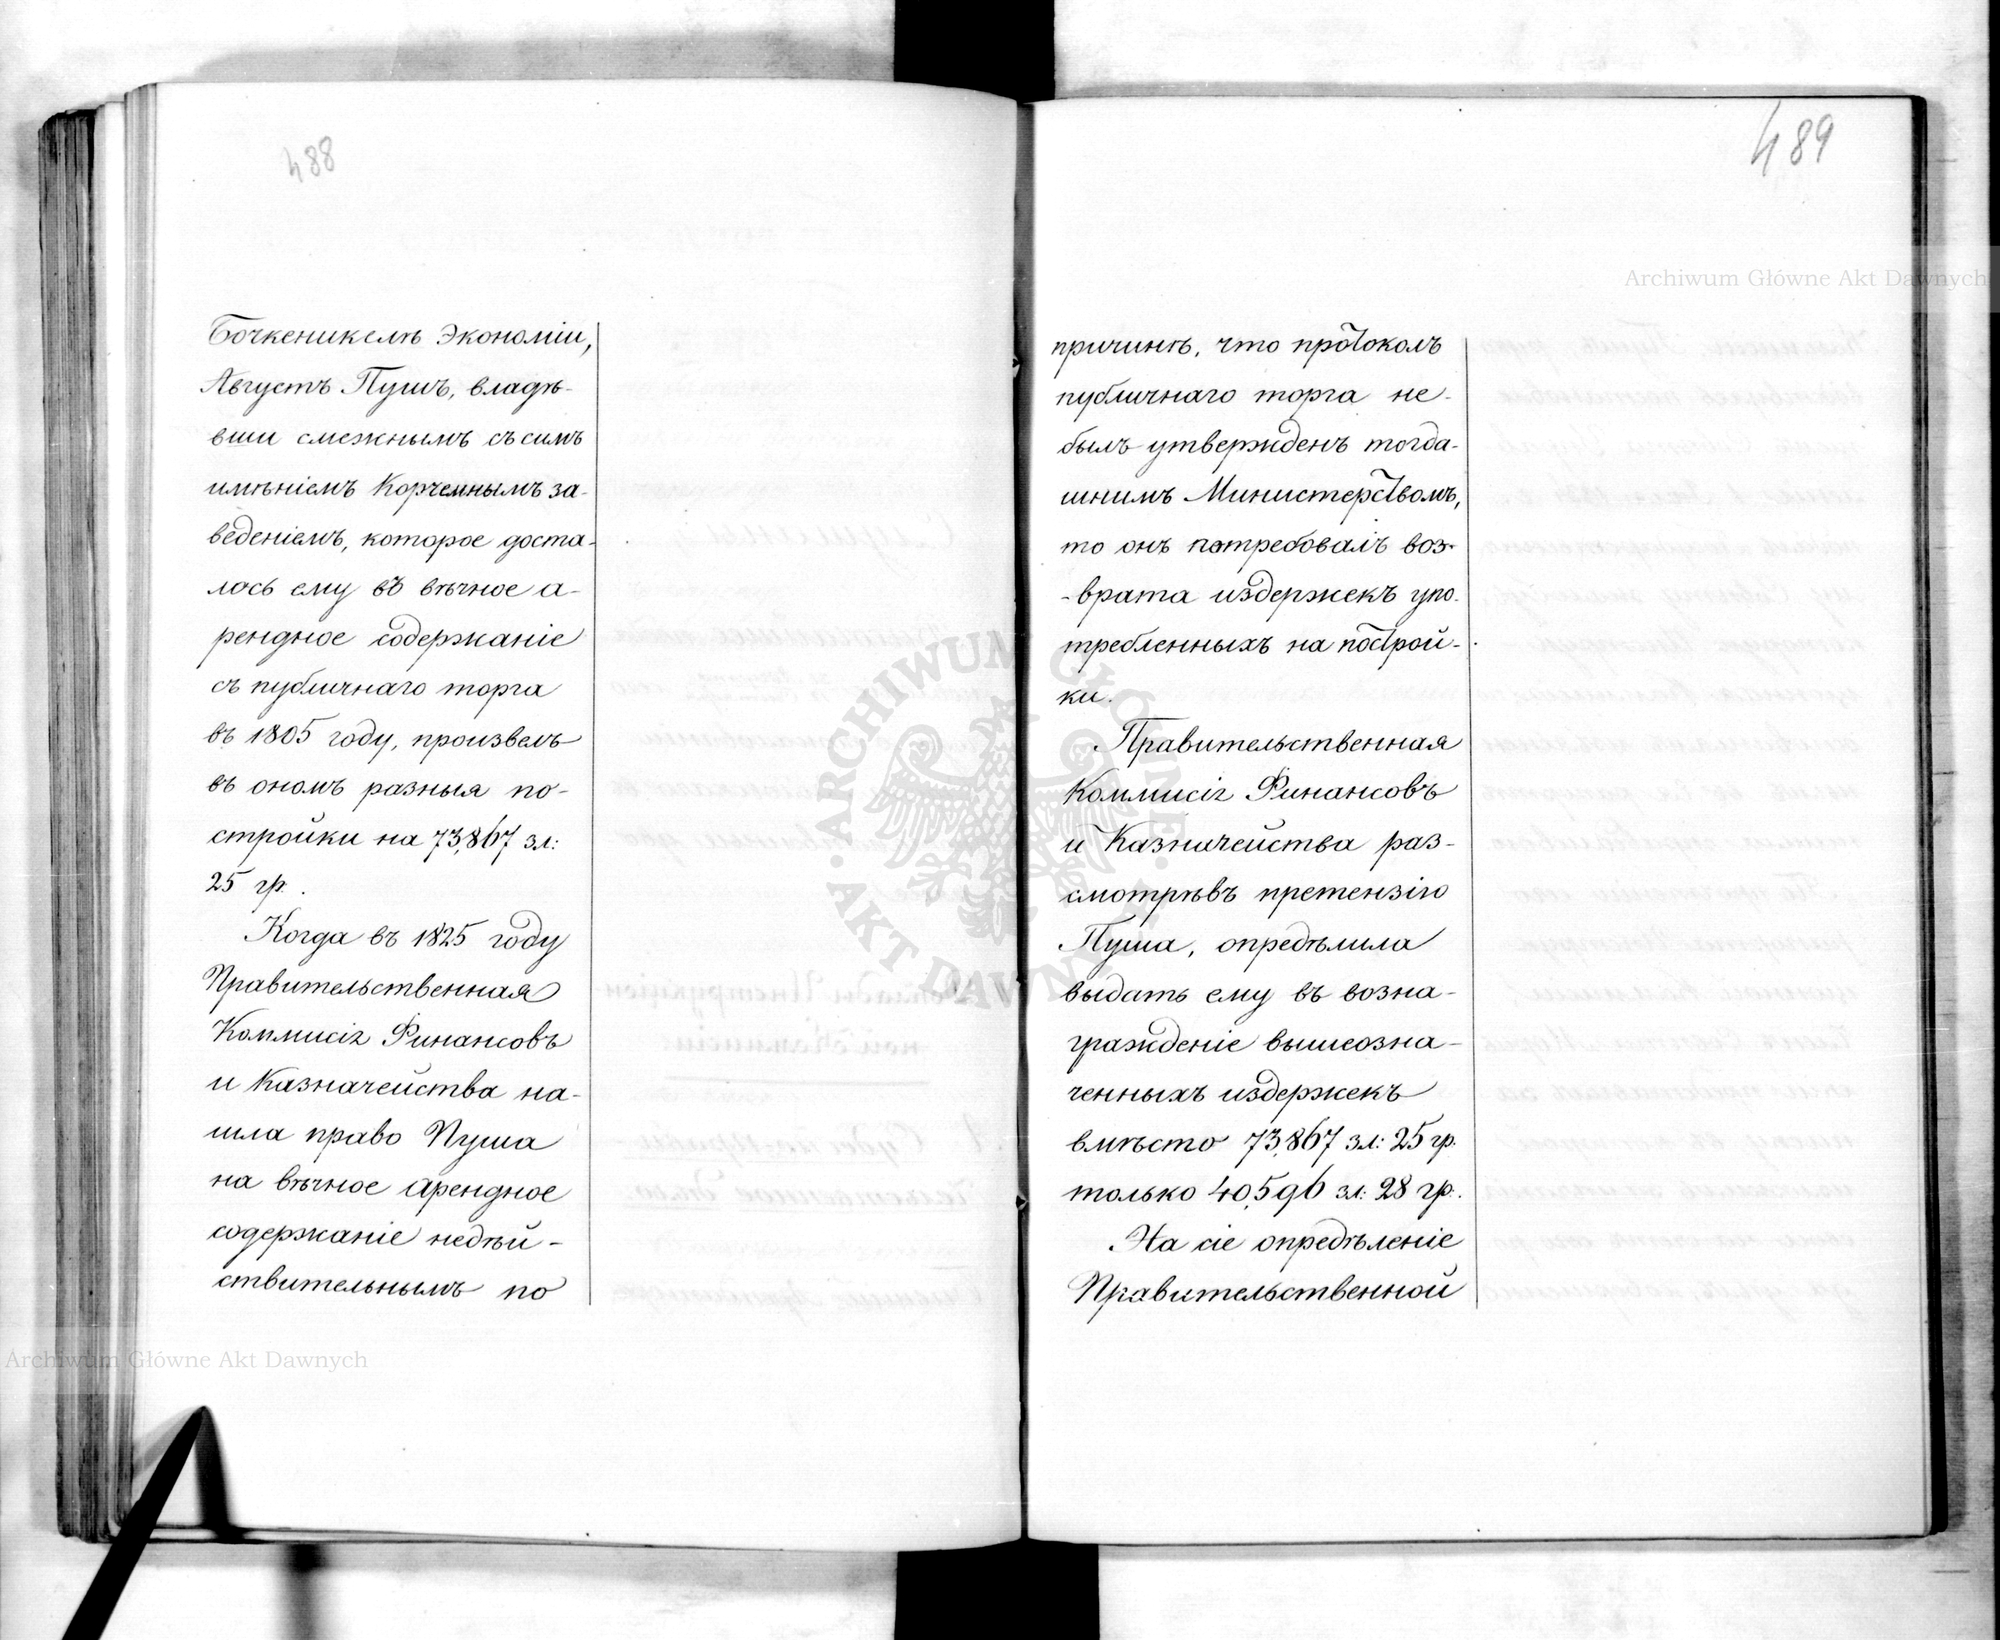 488
Бочкеникелъ Экономіи,
Августъ Пушъ, владѣ-
вши смежнымъ съ симъ
имѣніемъ Корчемнымъ за-
веденіемъ, которое доста-
лось ему въ вѣчное а-
рендное содержаніе
съ публичнаго торга
въ 1805 году, произвелъ
въ ономъ разныя по-
стройки на 73,867 зл:
25 гр.
Когда въ 1825 году
Правительственная
Коммисія Финансовъ
и Казначейства на-
шла право Пуша
на вѣчное арендное
содержаніе недѣй-
ствительнымъ по
489
причинѣ, что протоколъ
публичнаго торга не-
былъ утвержденъ тогда-
шнимъ Министерствомъ,
то онъ потребовалъ воз-
-врата издержекъ упо-
требленныхъ на построй-
ки.
Правительственная
Коммисія Финансовъ
и Казначейства раз-
смотрѣвъ претензію
Пуша, опредѣлила
выдать ему въ возна-
гражденіе вышеозна-
ченныхъ издержекъ
вмѣсто 73,867 зл: 25 гр.
только 40,596 зл: 28 гр.
На сіе опредѣленіе
Правительственной
Archiwum Główne Akt Dawnych
Archiwum Główne Akt Dawnych
ARCHIWUM GŁÓWNE AKT DAWNYCH